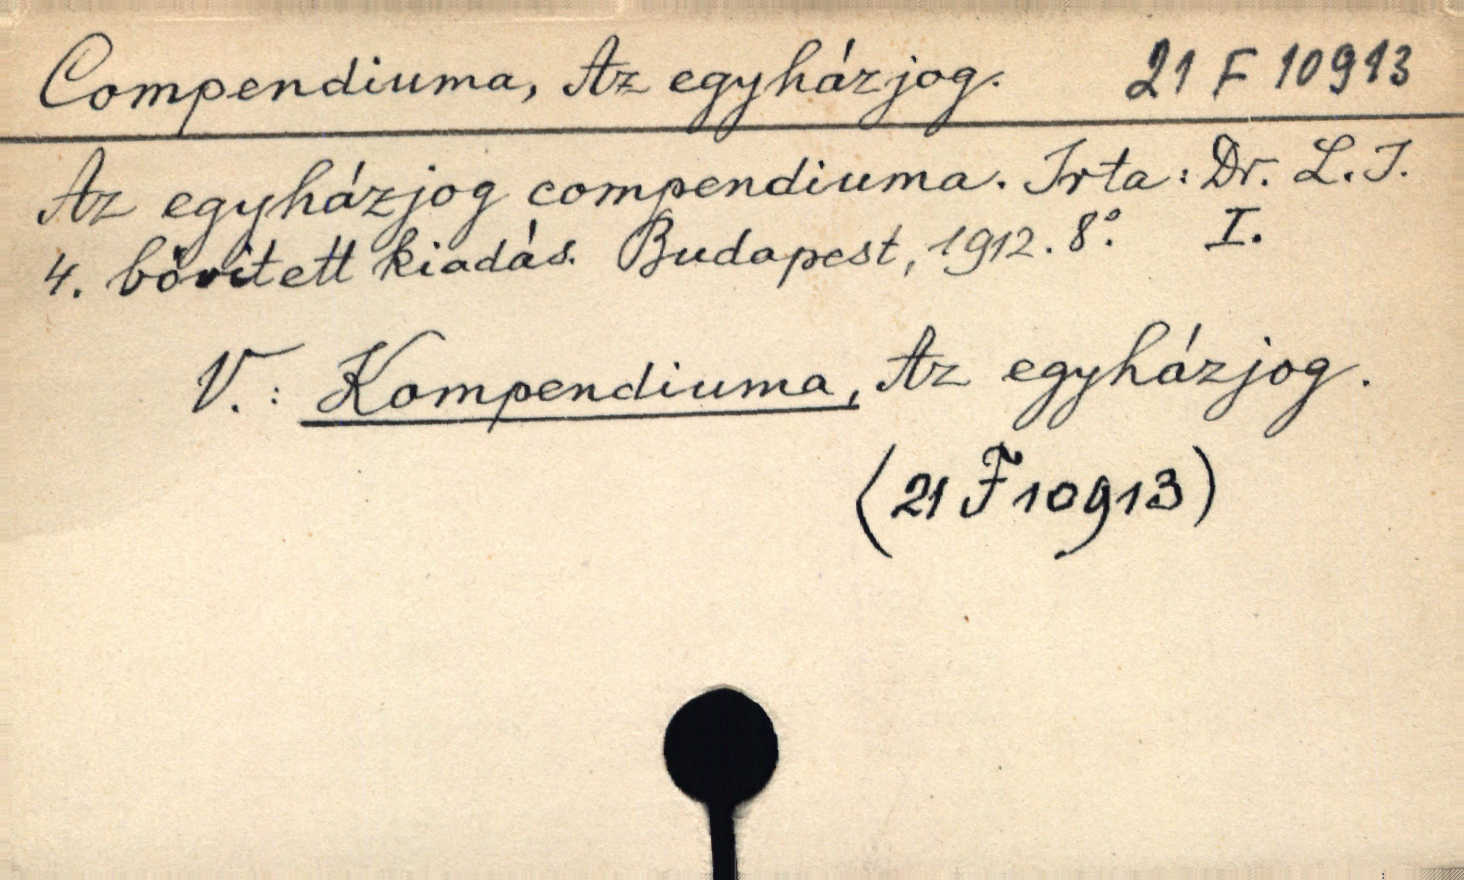 Compendiuma, Az egyházjog. 21 F 10913
Az egyházjog compendiuma. Irta: Dr. L. I.
4. bővitett kiadás. Budapest, 1912. 8° I.
V.: Kompendiuma, Az egyházjog.
(21 F 10913)